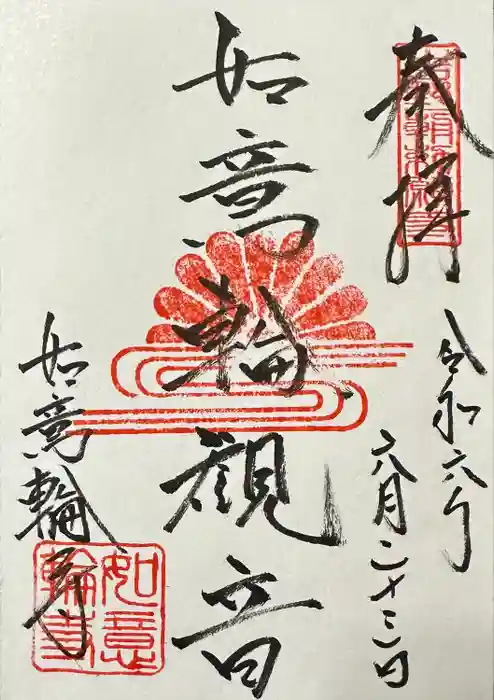 奉拝
令和六年
六月二十三日
如意輪観音
如意輪寺
如意輪寺